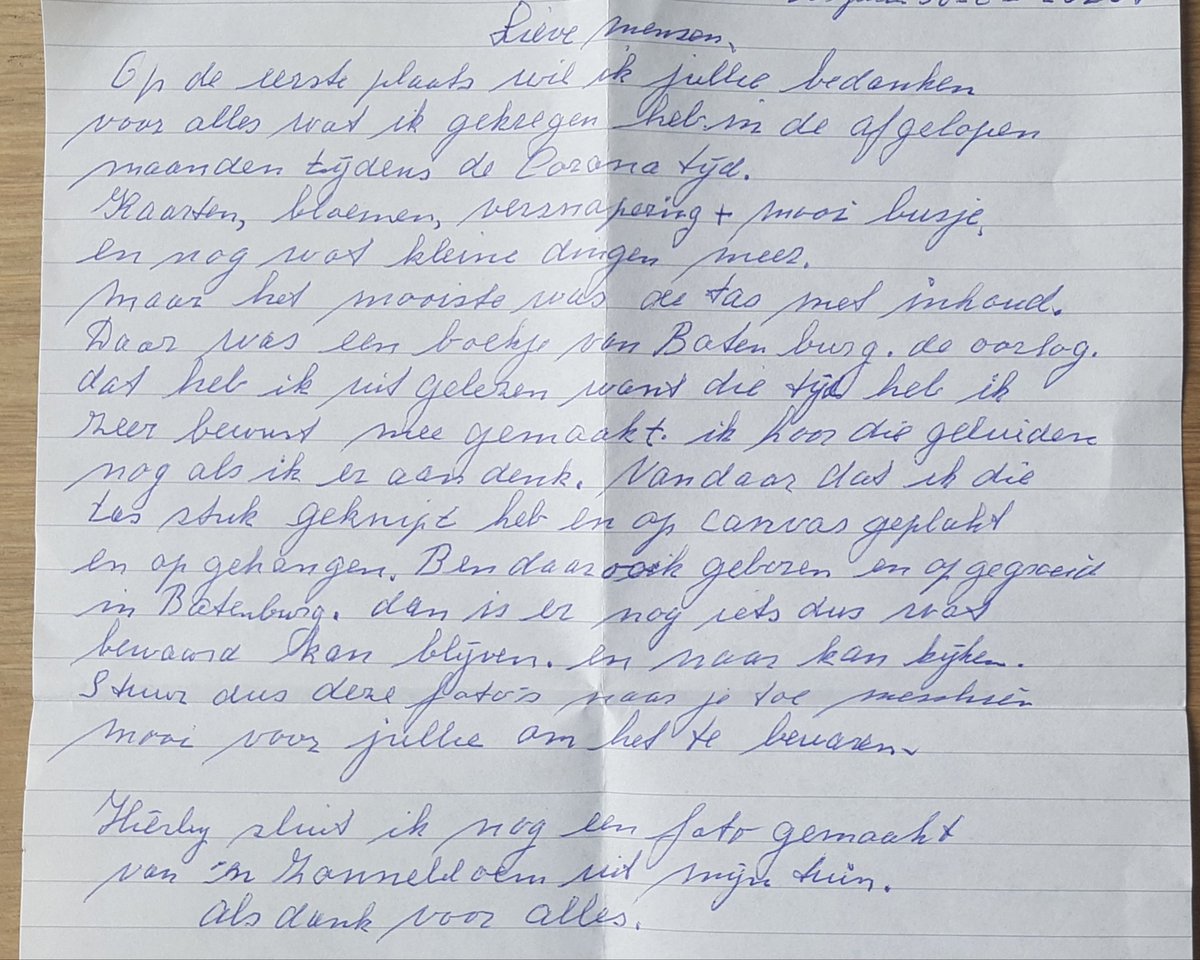 Lieve mensen,
Op de eerste plaats wil ik jullie bedanken
voor alles wat ik gekregen heb in de afgelopen
maanden tijdens de Corona tijd.
Kaarten, bloemen, versnapering + mooi busje,
en nog wat kleine dingen meer.
Maar het mooiste was de tas met inhoud.
Daar was een boekje van Batenburg. de oorlog.
dat heb ik uit gelezen want die tijd heb ik
zeer bewust mee gemaakt. ik hoor die geluiden
nog als ik er aan denk. Vandaar dat ik die
tas stuk geknipt heb en op canvas geplakt
en op gehangen. Ben daar ook geboren en opgegroeid
in Batenburg. dan is er nog iets dus wat
bewaard kan blijven. en naar kan kijken.
Stuur dus deze foto's naar je toe misschien
mooi voor jullie om het te bewaren.
Hierby sluit ik nog een foto gemaakt
van 'n Zonnebloem uit mijn tuin.
Als dank voor alles.